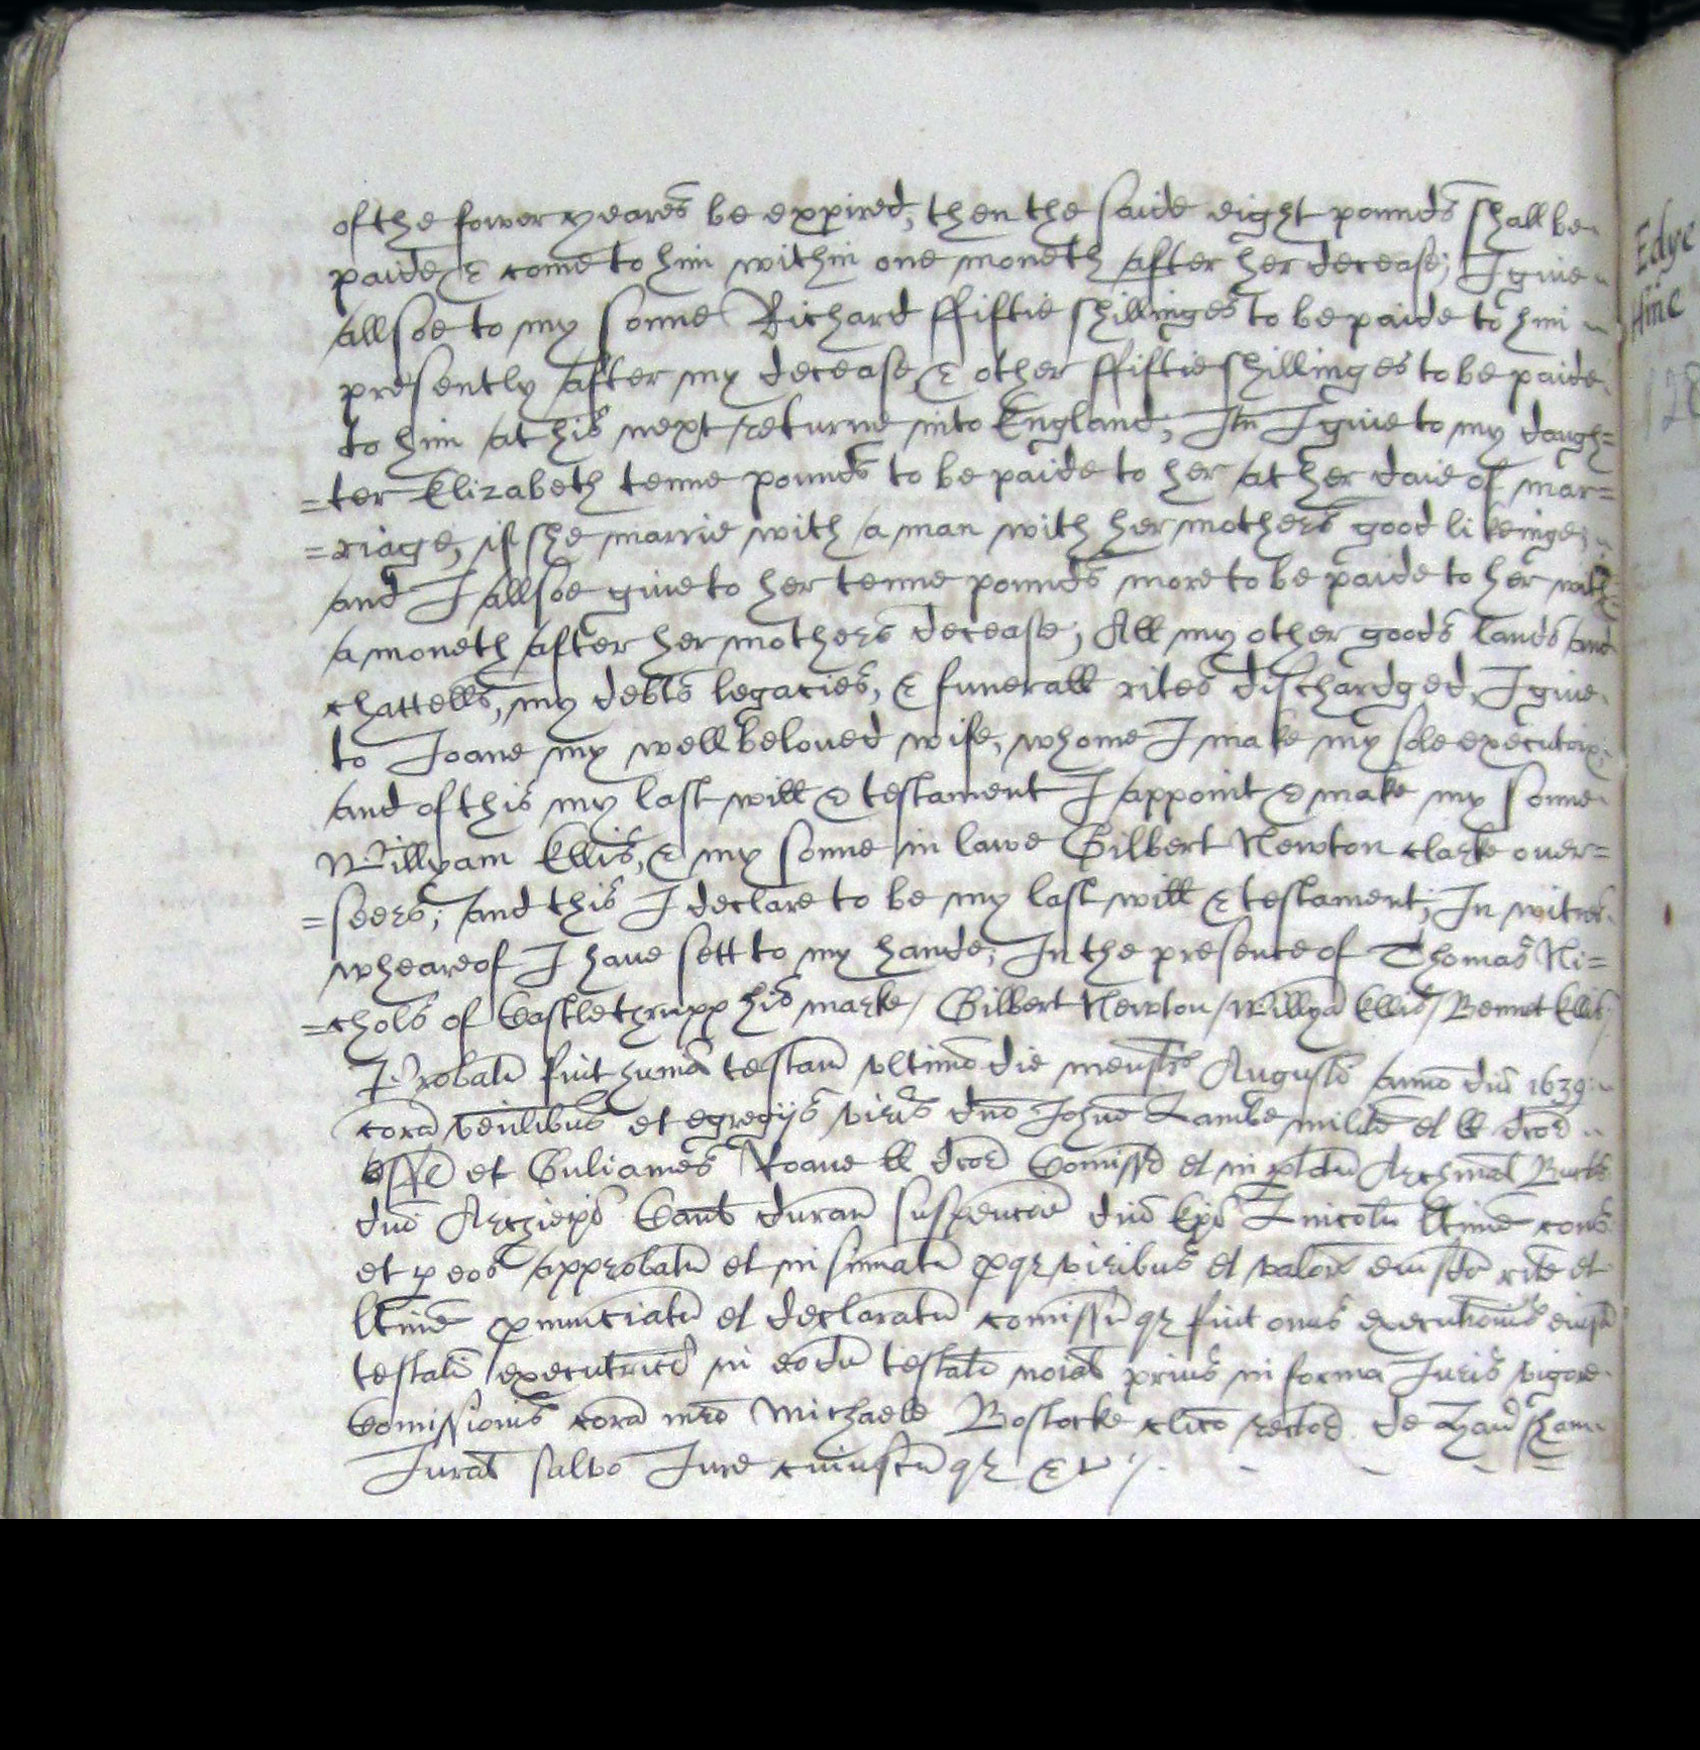 of the fower yeares be expired, then the saide eight pounds shall be
paide & come to him within one moneth after her decease; I give
allsoe to my sonne Richard ffiftie shillinges to be paide to him
presently after my decease & other ffiftie shillinges to be paide
to him at his next returne into England; Itm I give to my daugh=
=ter Elizabeth tenne pounds to be paide to her at her daie of mar=
=riage, if she marrie with a man with her mothers good likeinge;
and I allsoe give to her tenne pounds more to be paide to her with
a moneth after her mothers decease; All my other goods lands and
chattells, my debts legacies, & funerall rites dischardged, I give
to Joane my wellbeloved wife, whome I make my sole executrix;
and of this my last will & testament I appoint & make my sonne
Willyam Ellis, & my sonne in lawe Gilbert Newton clarke over=
=seers; and this I declare to be my last will & testament; In witnes
wheareof I have sett to my hande; In the presence of Thomas Ni=
=chols of Castlethrupp his marke / Gilbert Newton / Willya Ellis / Bennet Ellis
Probatu fuit humoi testam ultimo die mensis Augusti anno dni 1639
cora venlibus et egregijs viris dno Johne Lambe milite et ll dcor
Offle et Guliames Roane ll dcor Comisso et in Archinat Bucks
dno Archiepo Cant duran suspencoe dni Epi Lincoln ltime cons
et p eos approbatu et insinuatu pqz viribus et valore eiusdm rite et
ltime pnunciatu et declaratu comissu qz fuit onus executionis eiusd
testati executrici in eodm testato noiat prius in forma Juris vigore
Comissionis cora mro Michaele Bostocke clico rectore de Haversham
Jurat salvo Jure cuiuscu qz &c
Edye
Hine